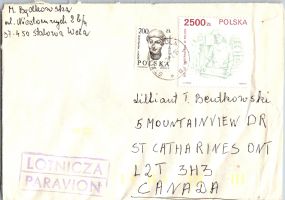 M. Będkowska
37-450 Stalowa Wola
200 zł
POLSKA
2500 zł POLSKA
Lilliant T. Bendkowski
5 MOUNTAINVIEW DR
ST CATHARINES ONT
L2T 3H3
CANADA
LOTNICZA
PARAVION